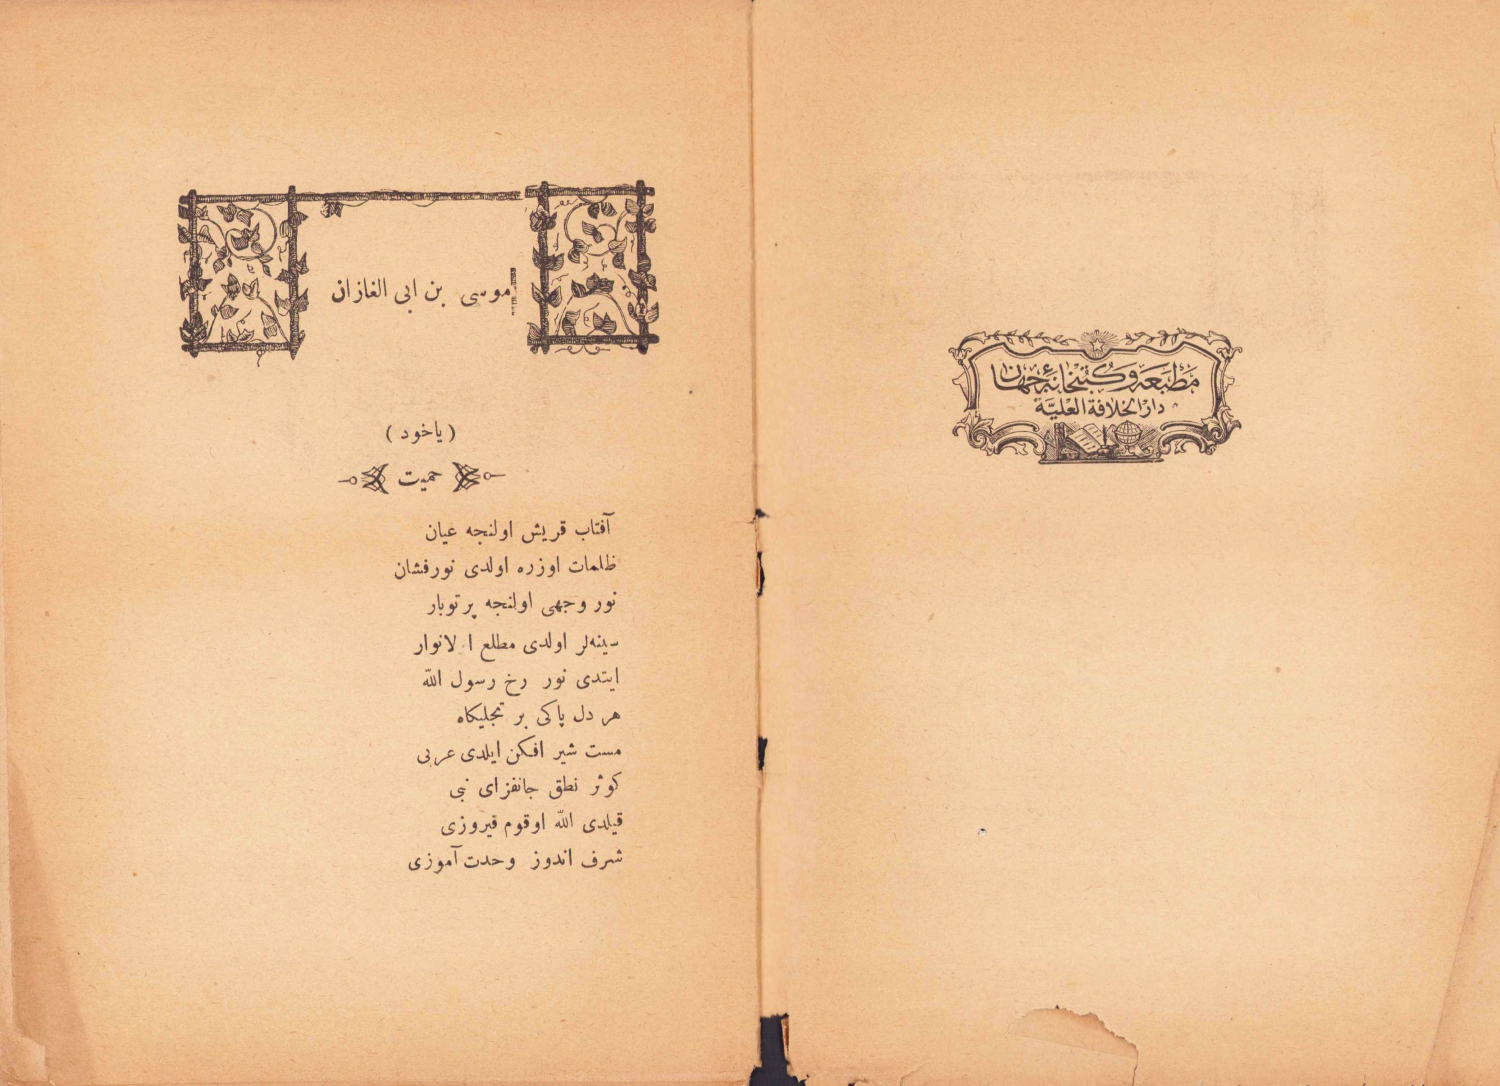 مطبعه و كتبخانهٔ جهان
دار الخلافة العليّة
موسى بن ابى الغازان
( ياخود )
حميت
آفتاب قريش اولنجه عيان
ظلمات اوزره اولدى نورفشان
نور وجهى اولنجه پرتوبار
سينه‌لر اولدى مطلع الانوار
ايتدى نور رخ رسول الله
هر دل پاكى بر تجليكاه
مست شير افكن ايلدى عربى
كوثر نطق جانفزاى نبى
قيلدى الله اوقوم فيروزى
شرف اندوز وحدت آموزى